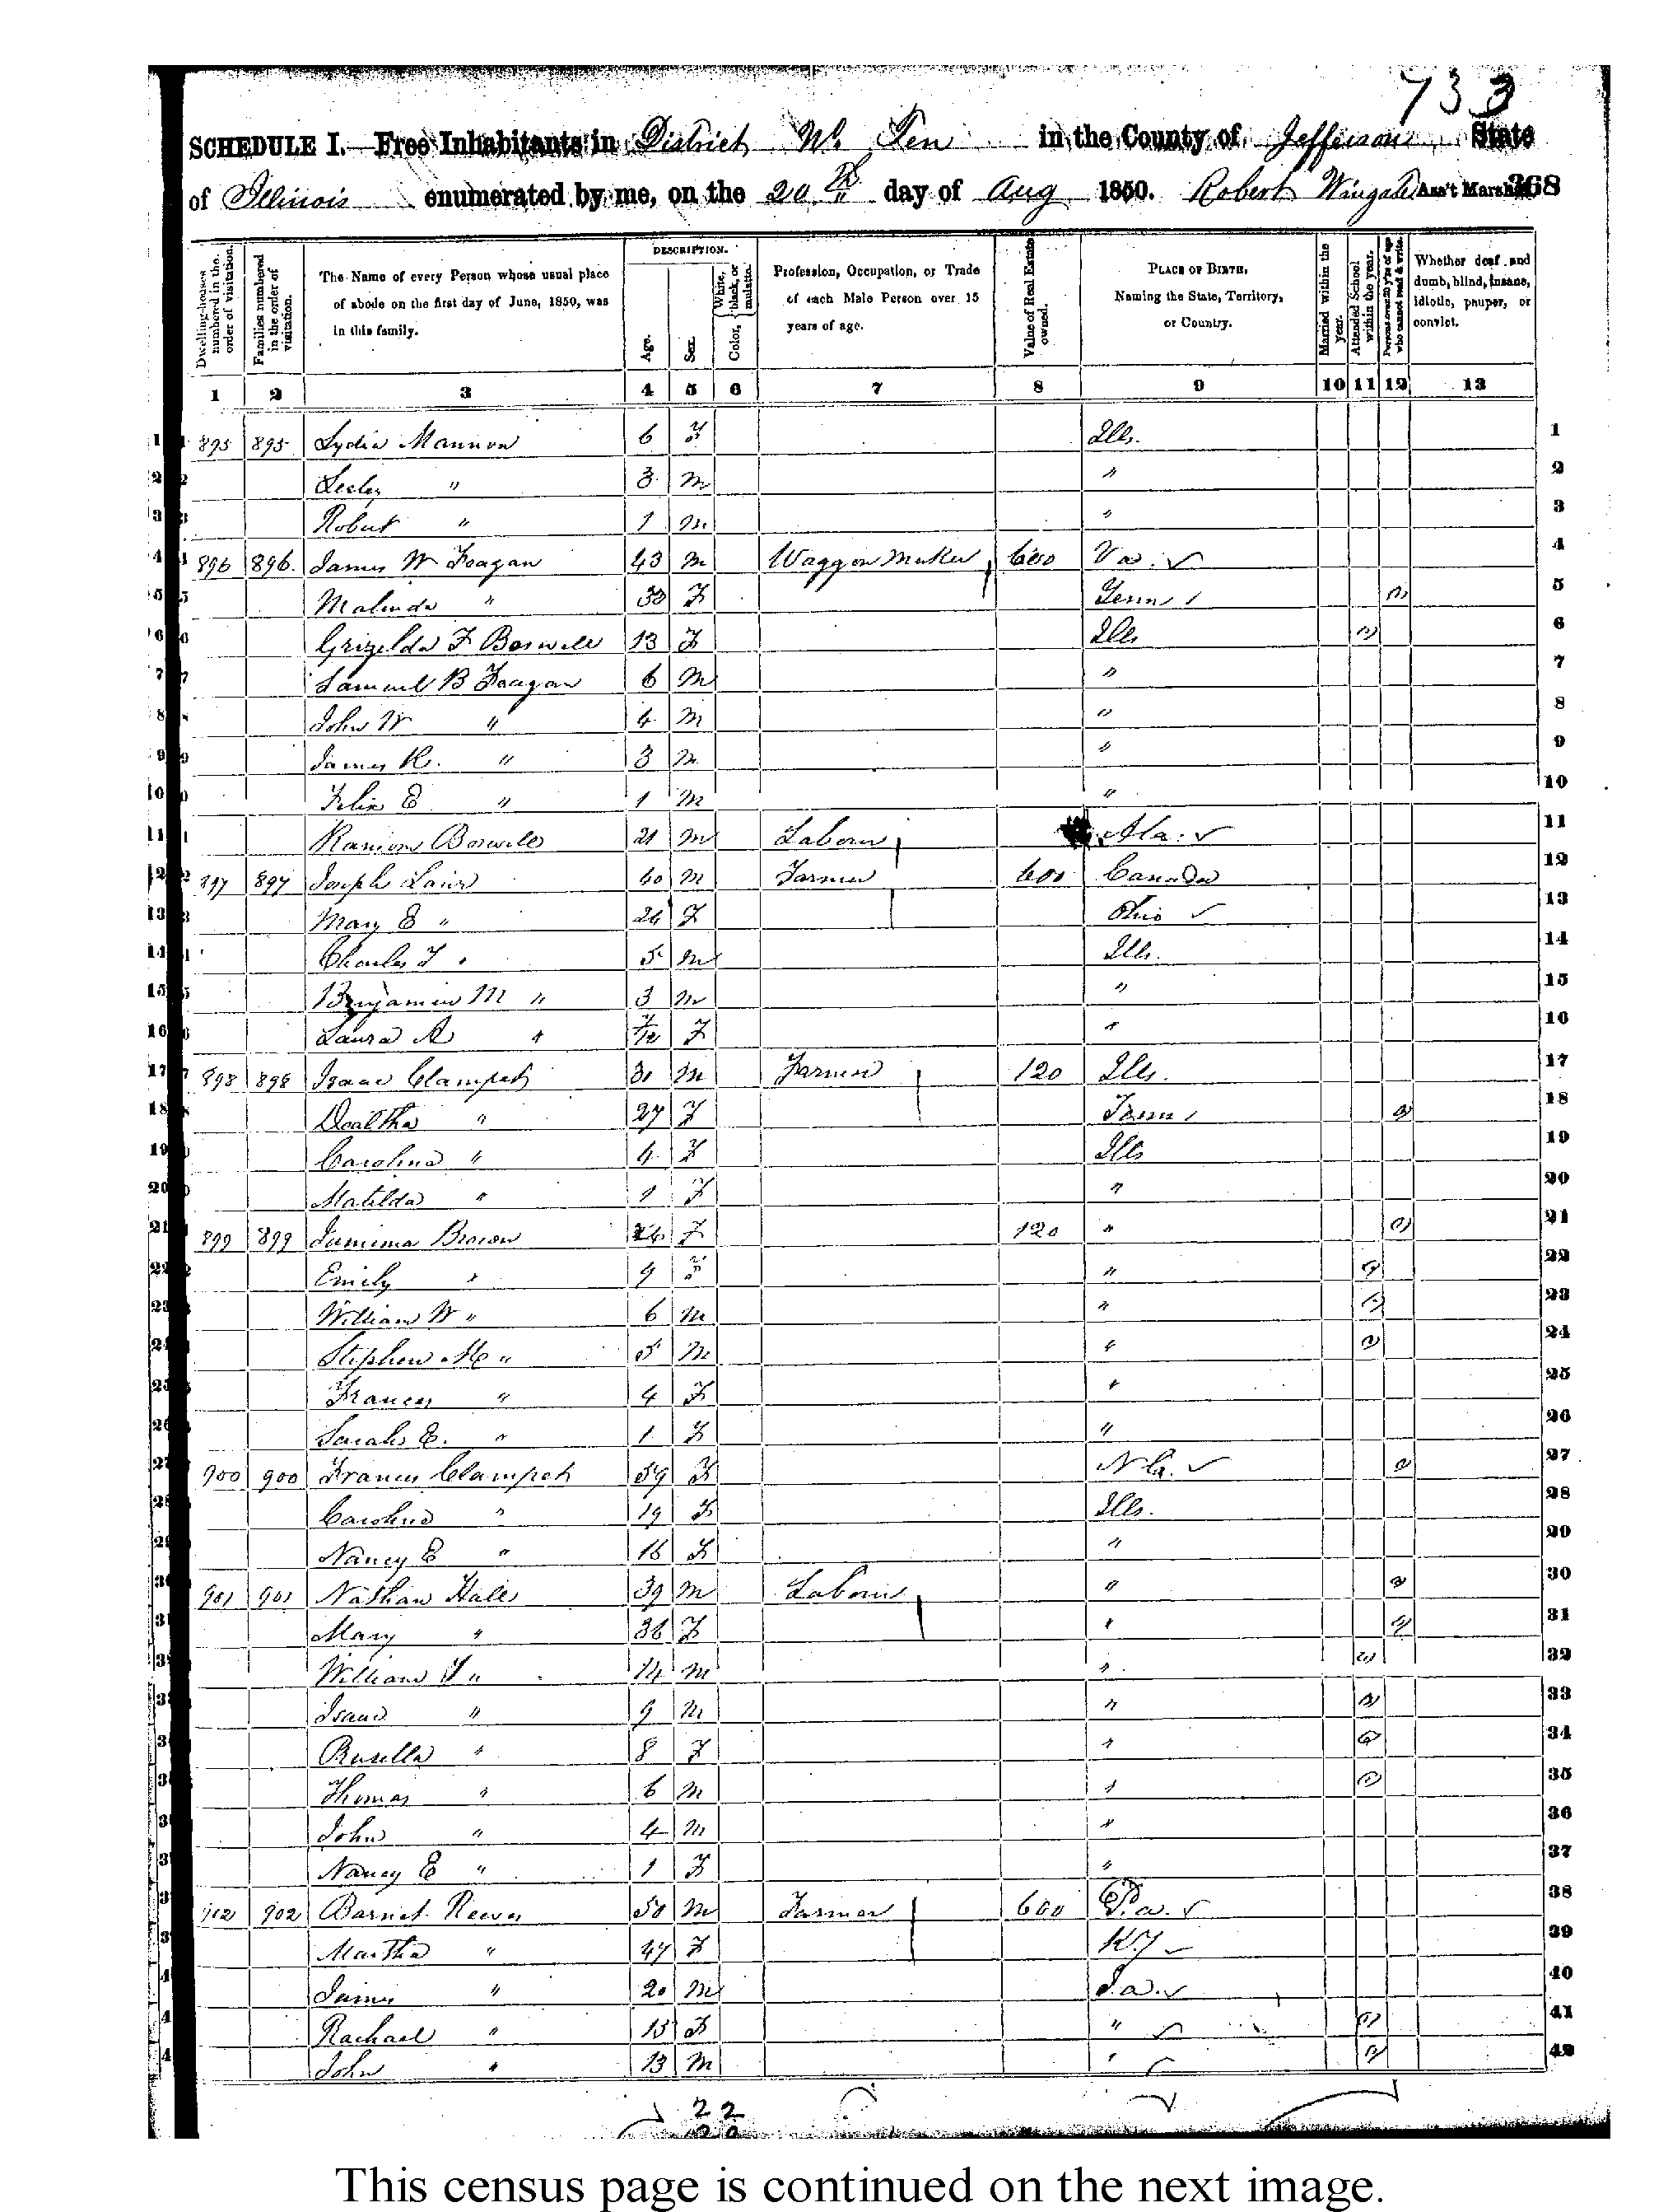 733
SCHEDULE I.—Free Inhabitants in District No. Ten in the County of Jefferson State
of Illinois enumerated by me, on the 20th day of Aug 1850. Robert Wingate Ass't Marshal. 368
Dwelling-houses numbered in the order of visitation.
Families numbered in the order of visitation.
The Name of every Person whose usual place of abode on the first day of June, 1850, was in this family.
DESCRIPTION.
Age.
Sex.
Color, White, black, or mulatto.
Profession, Occupation, or Trade of each Male Person over 15 years of age.
Value of Real Estate owned.
PLACE OF BIRTH, Naming the State, Territory, or Country.
Married within the year.
Attended School within the year.
Persons over 20 y'rs of age who cannot read & write.
Whether deaf and dumb, blind, insane, idiotic, pauper, or convict.
1 2 3 4 5 6 7 8 9 10 11 12 13
1 895 895 Lydia Mannon 6 F Ills. 1
2 Lesley " 3 M " 2
3 Robert " 1 M " 3
4 896 896 James W Feagan 43 M Waggon Maker 600 Va. ✓ 4
5 Malinda " 30 F Tenn 1 5
6 Grizelda F Boswell 13 F Ills 1 6
7 Samuel B Feagan 6 M " 7
8 John W " 4 M " 8
9 James R. " 3 M " 9
10 Felix E " 1 M " 10
11 Ransom Boswell 21 M Laborer Ala. ✓ 11
12 897 897 Joseph Lair 40 M Farmer 600 Canada 12
13 Mary E " 26 F Ohio ✓ 13
14 Charles F " 5 M Ills. 14
15 Benjamin M " 3 M " 15
16 Laura A " 7/12 F " 16
17 898 898 Isaac Clampet 30 M Farmer 120 Ills. 17
18 Dealtha " 27 F Tenn 1 18
19 Carolina " 4 F Ills 19
20 Matilda " 1 F " 20
21 899 899 Jemima Brown 26 F 120 " 1 21
22 Emily " 9 F " 1 22
23 William W " 6 M " 1 23
24 Stephen M " 5 M " 1 24
25 Frances " 4 F " 25
26 Sarah E. " 1 F " 26
27 900 900 Frances Clampet 59 F N Ca. ✓ 1 27
28 Caroline " 19 F Ills. 28
29 Nancy E " 16 F " 29
30 901 901 Nathan Hale 39 M Laborer " 1 30
31 Mary " 36 F " 1 31
32 William T " 14 M " 1 32
33 Isaac " 9 M " 1 33
34 Rusella " 8 F " 1 34
35 Thomas " 6 M " 1 35
36 John " 4 M " 36
37 Nancy E " 1 F " 37
38 902 902 Barnet 50 M Farmer 600 Pa. ✓ 38
39 Martha " 47 F KY ✓ 39
40 James " 20 M ✓ 40
41 Rachael " 15 F " ✓ 1 41
42 John " 13 M " ✓ 1 42
22
This census page is continued on the next image.